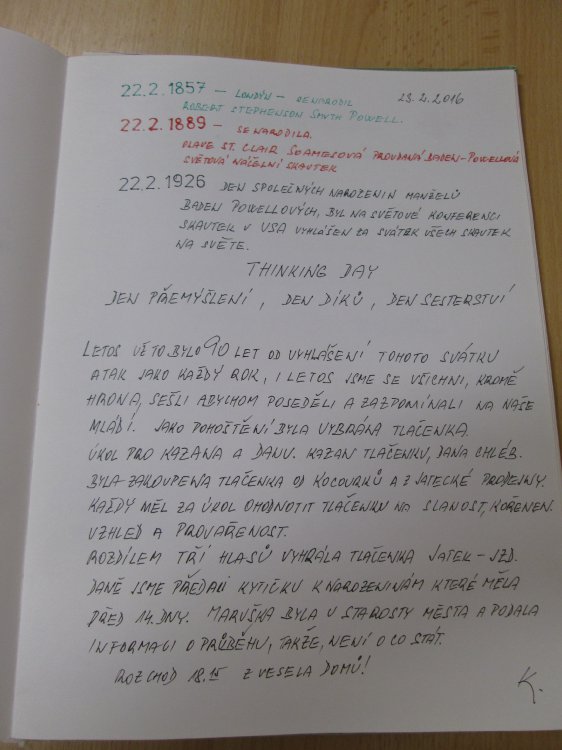 22.2.1857 – LONDÝN – SE NARODIL 23.2.2016
ROBERT STEPHENSON SMYTH POWELL.
22.2.1889 – SE NARODILA.
OLAVE ST. CLAIR SOAMESOVÁ PROVDANÁ BADEN-POWELLOVÁ
SVĚTOVÁ NÁČELNÍ SKAUTEK
22.2.1926 DEN SPOLEČNÝCH NAROZENIN MANŽELŮ
BADEN POWELLOVÝCH, BYL NA SVĚTOVÉ KONFERENCI
SKAUTEK V USA VYHLÁŠEN ZA SVÁTEK VŠECH SKAUTEK
NA SVĚTĚ.
THINKING DAY
DEN PŘEMÝŠLENÍ, DEN DÍKŮ, DEN SESTERSTVÍ
LETOS UŽ TO BYLO 90 LET OD VYHLÁŠENÍ TOHOTO SVÁTKU
A TAK JAKO KAŽDÝ ROK, I LETOS JSME SE VŠICHNI, KROMĚ
HRONA, SEŠLI ABYCHOM POSEDĚLI A ZAZPOMÍNALI NA NAŠE
MLÁDÍ. JAKO POHOŠTĚNÍ BYLA VYBRÁNA TLAČENKA.
ÚKOL PRO KAZANA A DANU. KAZAN TLAČENKU, DANA CHLÉB.
BYLA ZAKOUPENA TLAČENKA OD KOCOURKŮ A Z JATECKÉ PRODEJNY.
KAŽDÝ MĚL ZA ÚKOL OHODNOTIT TLAČENKU NA SLANOST, KOŘENĚN.
VZHLED A PROVAŘENOST.
ROZDÍLEM TŘÍ HLASŮ VYHRÁLA TLAČENKA JATEK – JZD.
DANĚ JSME PŘEDALI KYTIČKU K NAROZENINÁM KTERÉ MĚLA
PŘED 14. DNY. MARUŠKA BYLA U STAROSTY MĚSTA A PODALA
INFORMACI O PRŮBĚHU, TAKŽE, NENÍ O CO STÁT.
ROZCHOD 18.15 Z VESELA DOMŮ!
K.